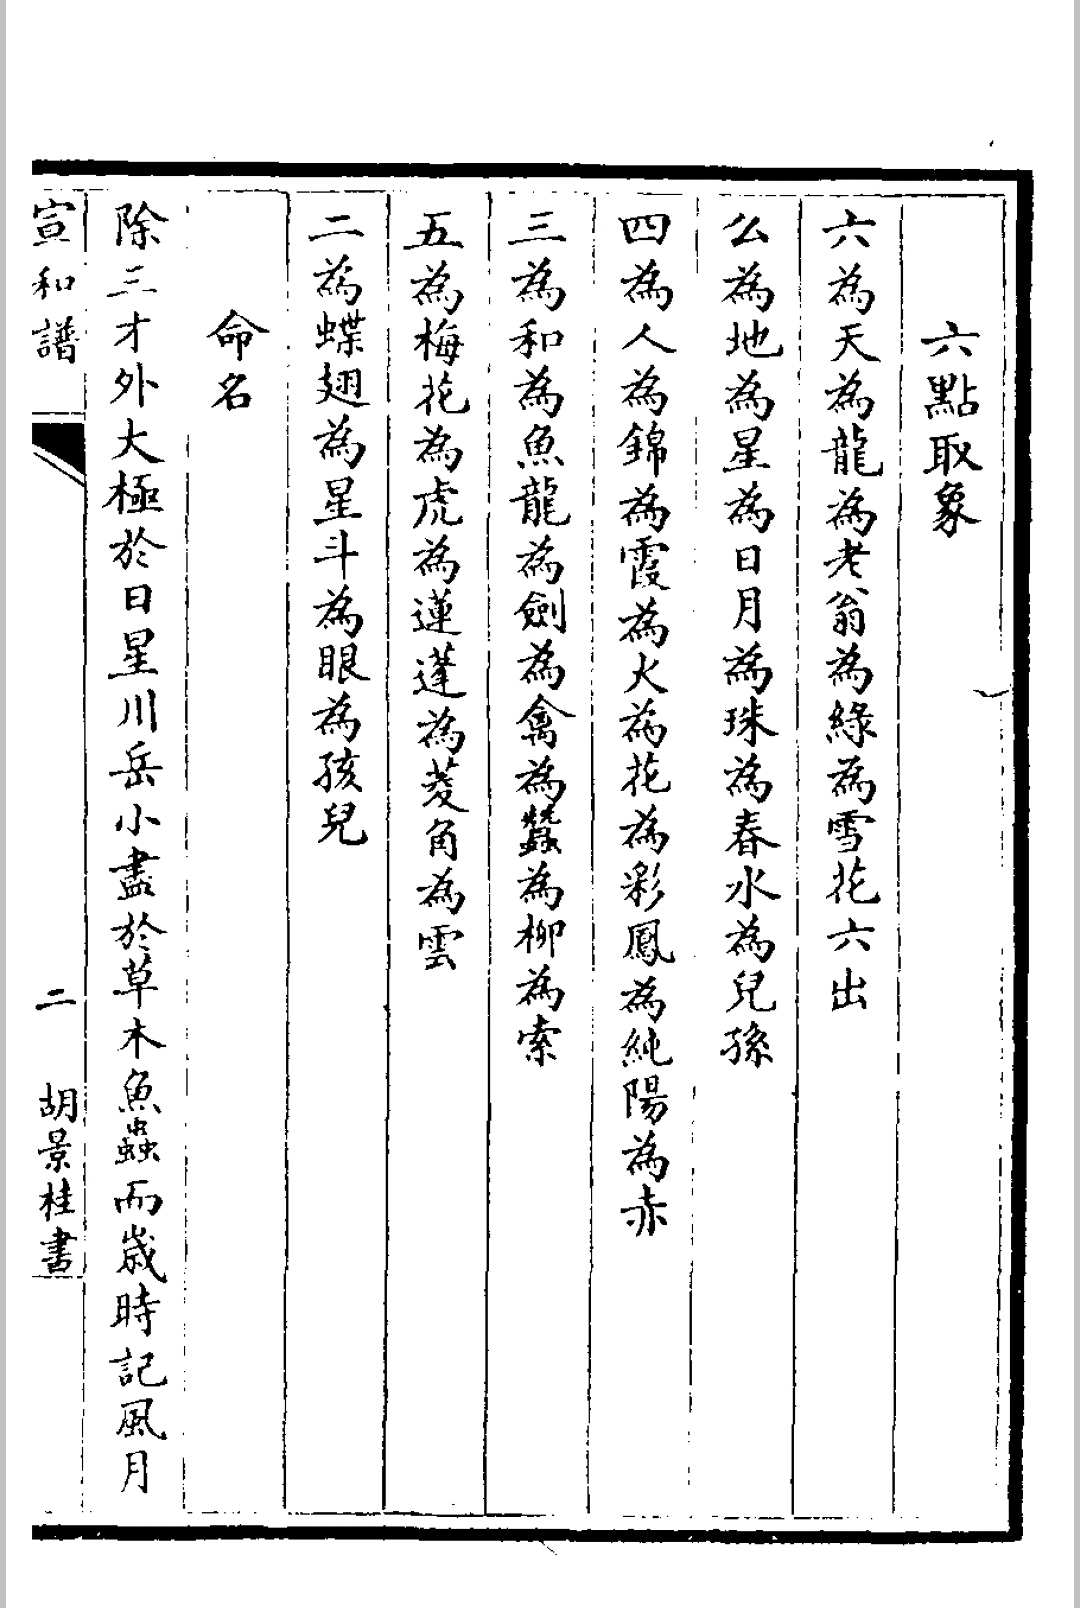 六點取象
六為天為龍為老翁為綠為雪花六出
么為地為星為日月為珠為春水為兒孫
四為人為錦為霞為火為花為彩鳳為純陽為赤
三為和為魚龍為劍為禽為蠶為柳為索
五為梅花為虎為蓮蓬為菱角為雲
二為蝶翅為星斗為眼為孩兒
命名
除三才外大極於日星川岳小盡於草木魚蟲而歲時記風月
宣和譜
二
胡景桂書